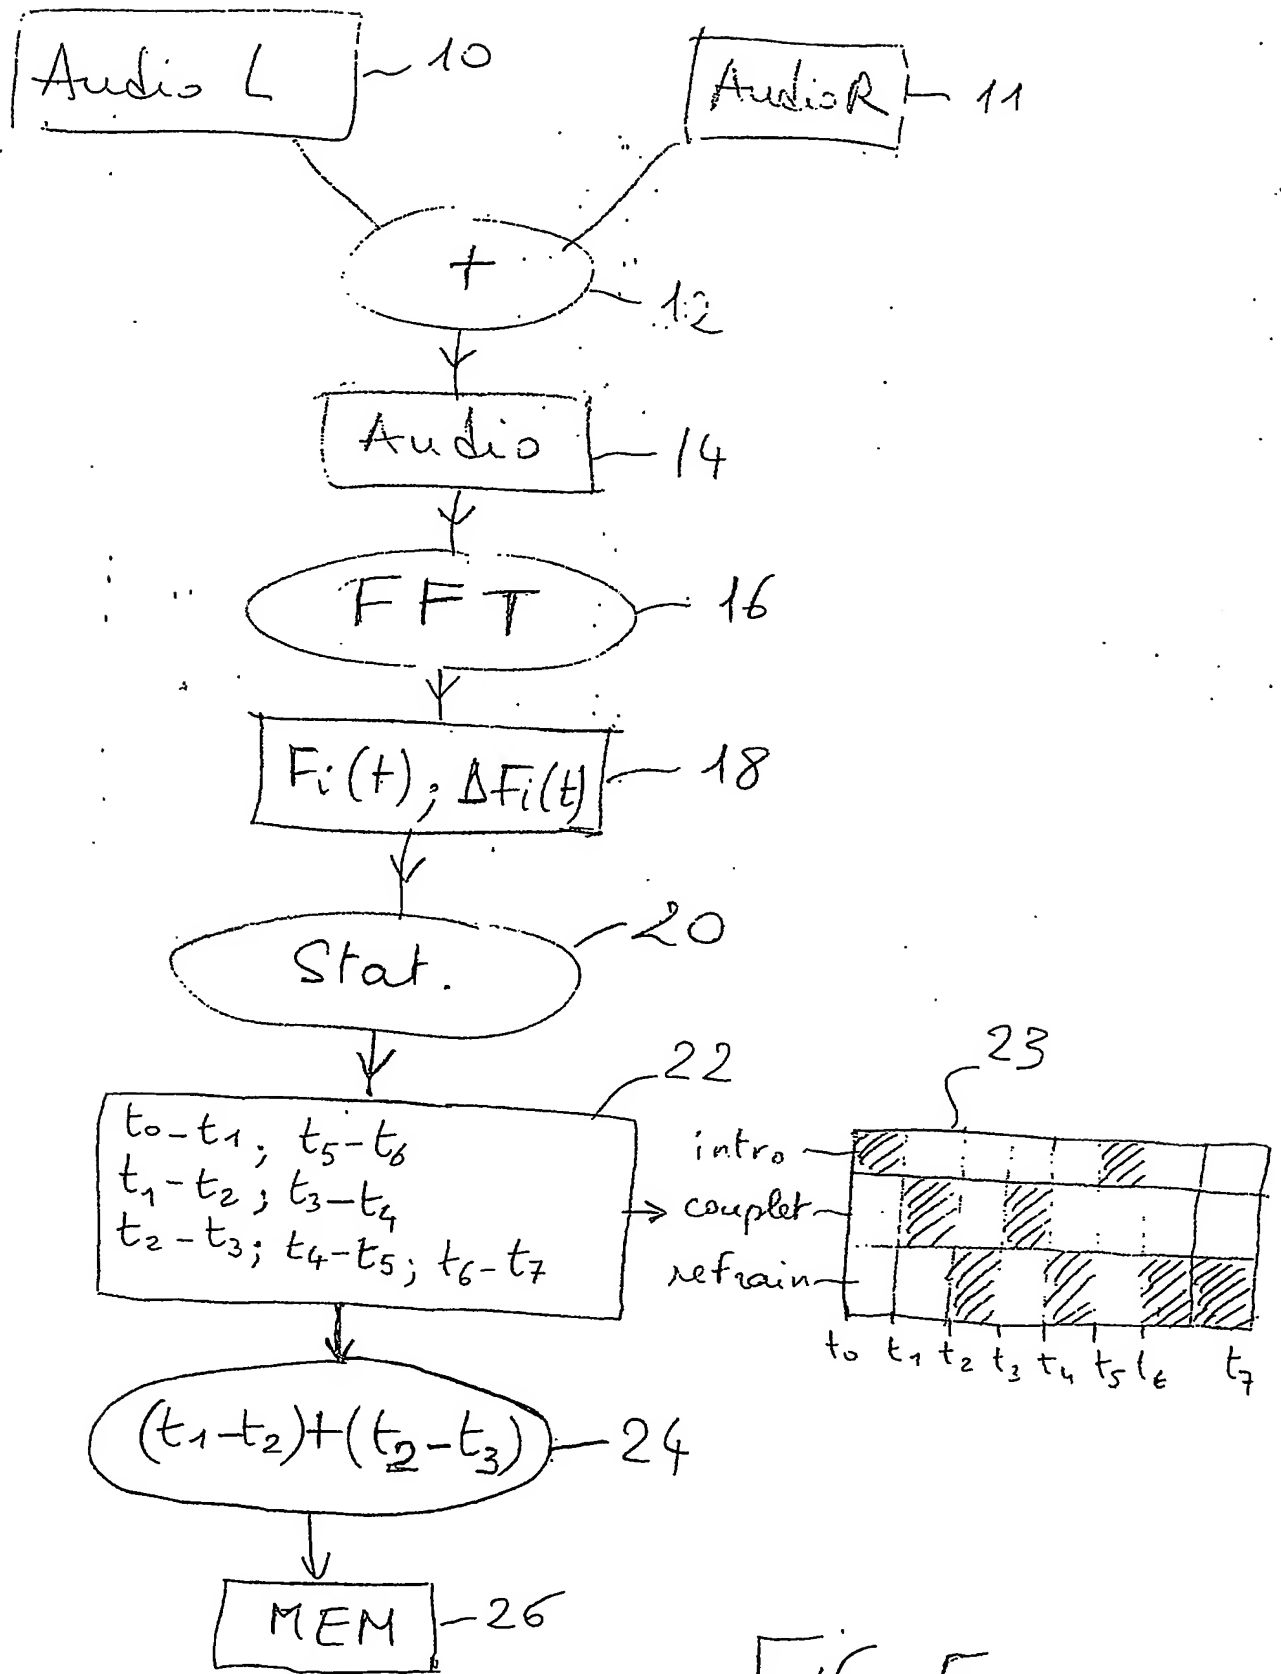 Audio L 10
Audio R 11
+ 12
Audio 14
FFT 16
Fi(t); ΔFi(t) 18
Stat. 20
22
t0-t1; t5-t6
t1-t2; t3-t4
t2-t3; t4-t5; t6-t7
23
intro
couplet
refrain
t0 t1 t2 t3 t4 t5 t6 t7
(t1-t2)+(t2-t3) 24
MEM 26